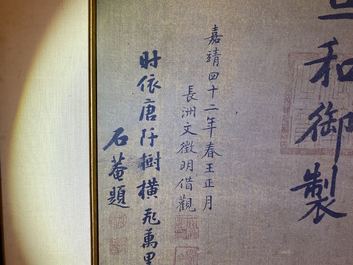 和御製
嘉靖四十二年春王正月
長洲文徵明借觀
時依唐阡樹橫飛萬里
石菴題